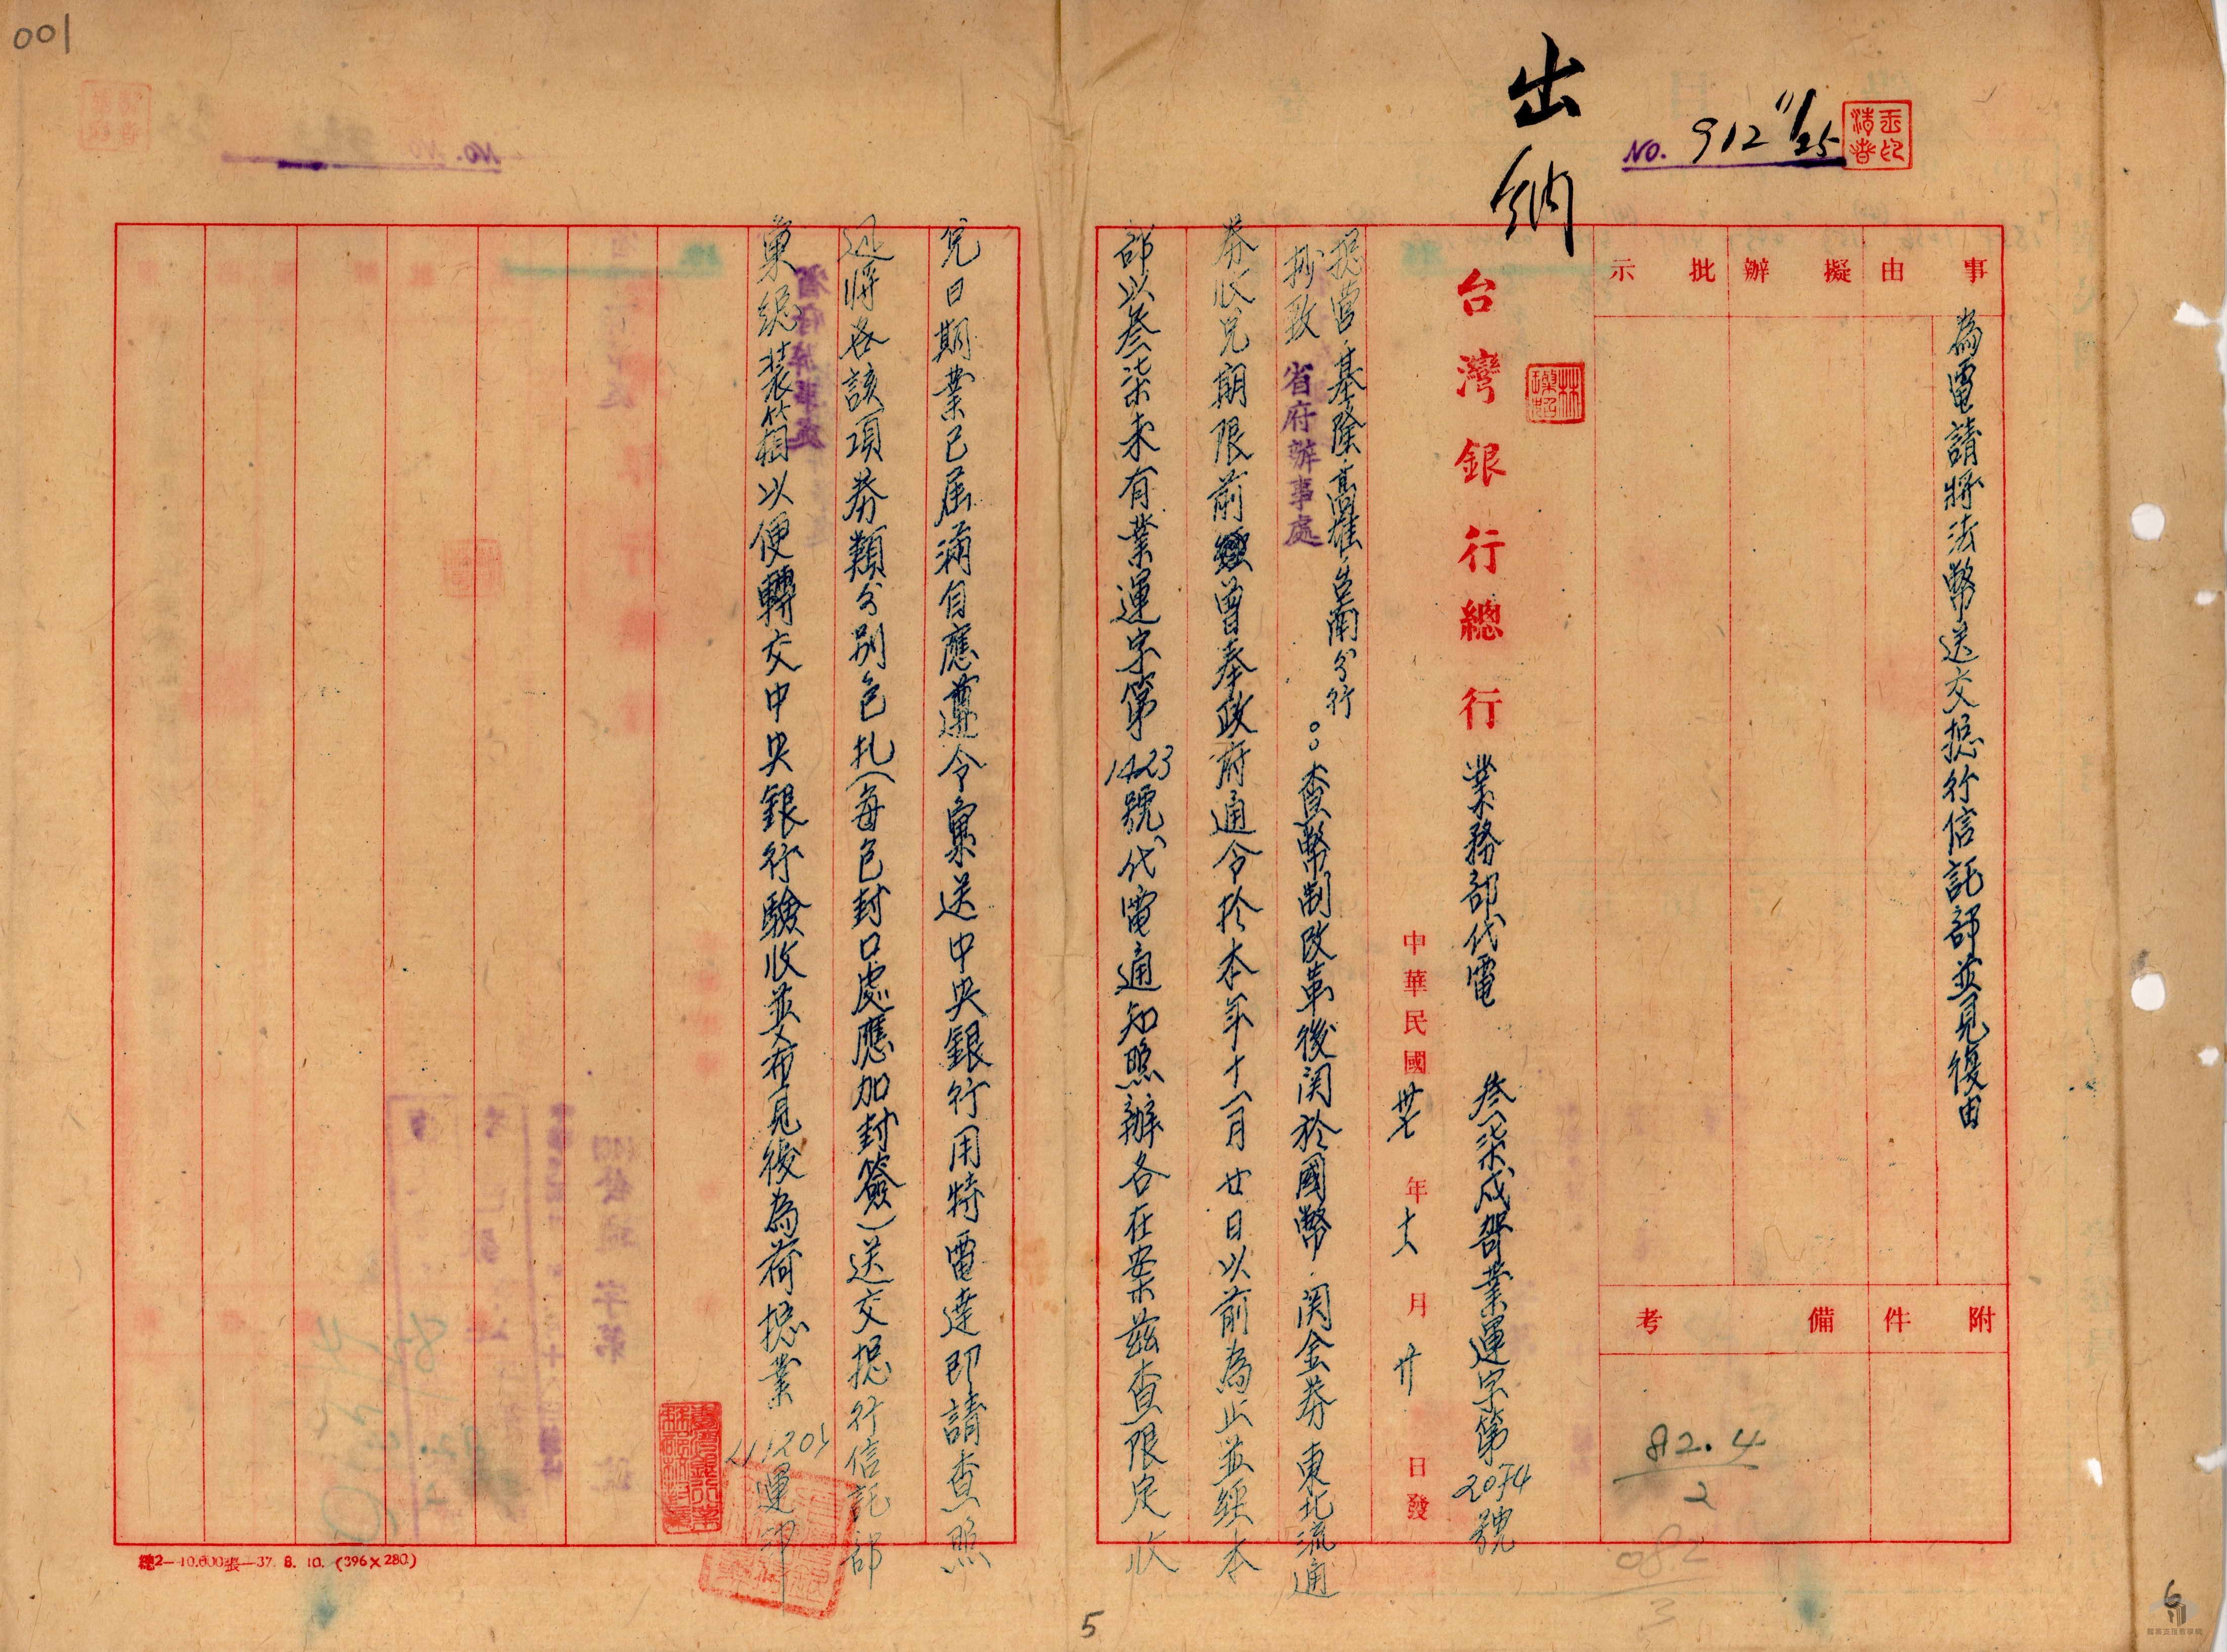 001
出納
NO. 912 11/25
事由
擬辦
批示
為電請將法幣送交總行信託部並見復由
附件
備考
82.4
2
082
3
台灣銀行總行業務部代電 叁柒戌哿業運字第2074號
中華民國卅七年十一月廿日發
總營.基隆.高雄.台南分行
抄致 省府辦事處
:查幣制改革後関於國幣.関金券東北流通
券收兌期限前經曾奉政府通令於本年十一月廿日以前為止並經本
部以叁柒未有業運字第1423號代電通知照辦各在案茲查限定收
兌日期業已屆滿自應遵令彙送中央銀行用特電達即請查照
迅將各該項券類分別包扎(每包封口處應加封簽)送交總行信託部
彙總裝箱以便轉交中央銀行驗收並希見復為荷總業
運印
總2—10.000張—37. 8. 10. (396×280)
5
6